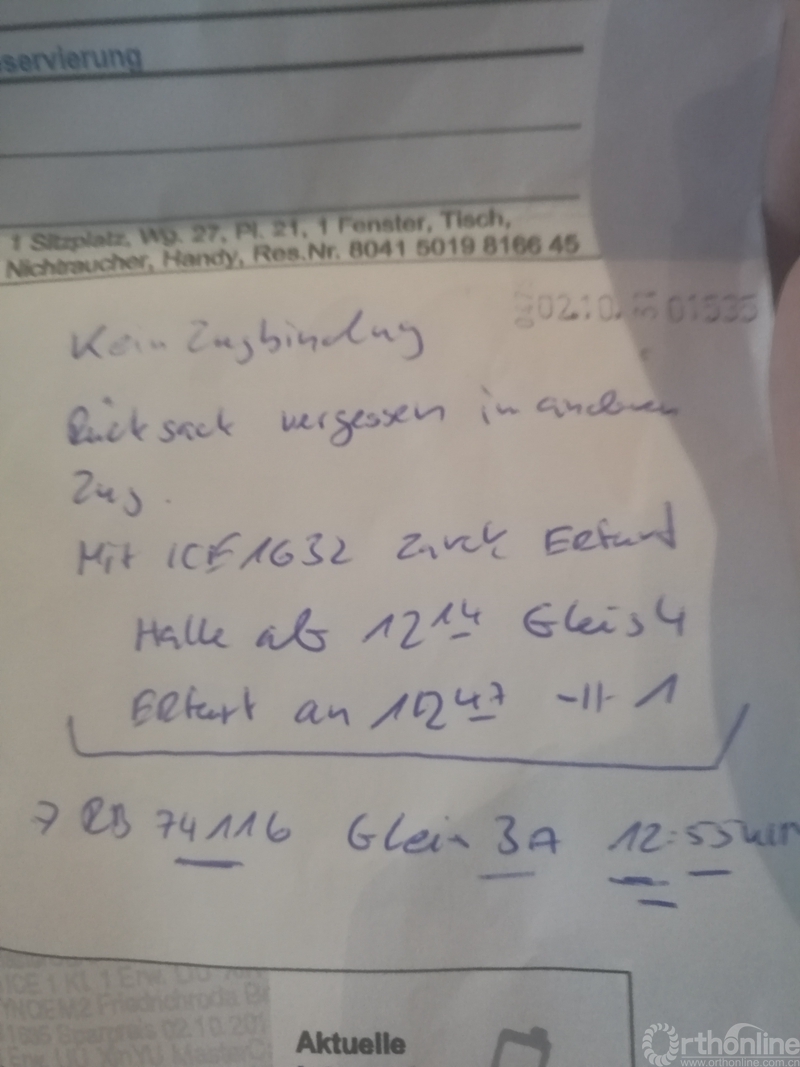 servierung
1 Sitzplatz, Wg. 27, Pl. 21, 1 Fenster, Tisch,
Nichtraucher, Handy, Res.Nr. 8041 5019 8166 45
02.10. 01535
Kein Zugbindung
Rücksack vergessen in anderen
Zug.
Mit ICE1632 zurück Erfurt
Halle ab 12 14 Gleis 4
Erfurt an 12 47 -11- 1
→ RB 74116 Gleis 3A 12:55 Uhr
ICE 1 Kl. 1 Erw.
Friedrichroda
Sparpreis 02.10.201
Aktuelle
Orthonline
www.orthonline.com.cn